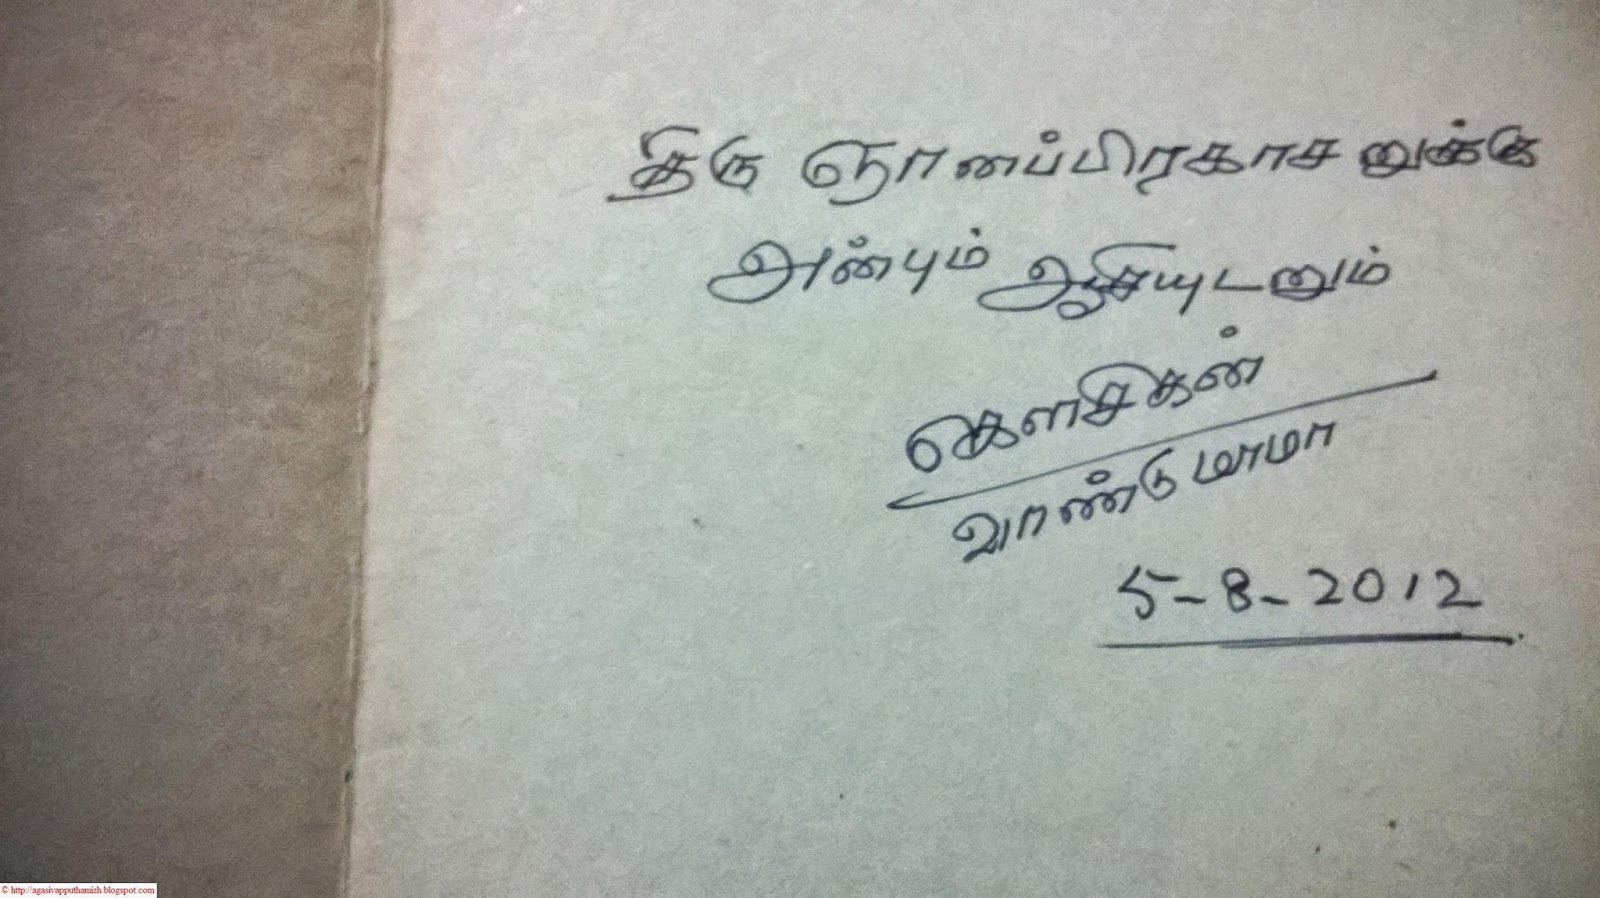 திரு ஞானப்பிரகாசனுக்கு
அன்பும் ஆசியுடனும்
கௌசிகன்
வாண்டுமாமா
5-8-2012
© http://agasivapputhamizh.blogspot.com